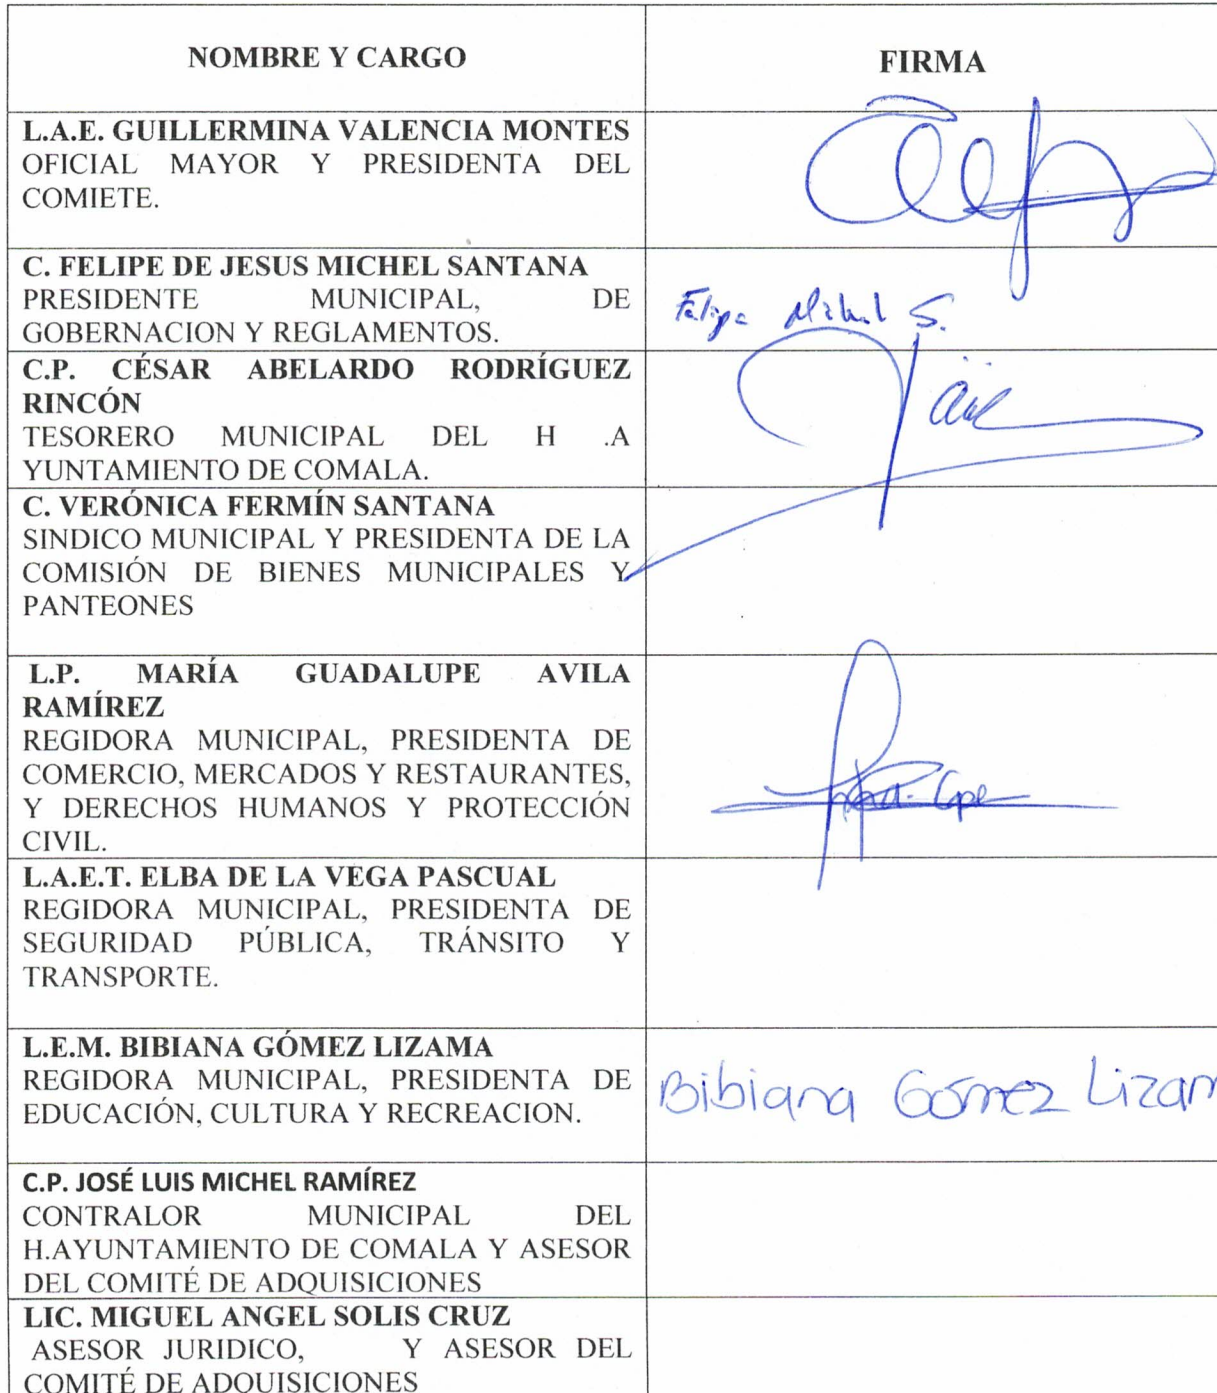 NOMBRE Y CARGO
FIRMA
L.A.E. GUILLERMINA VALENCIA MONTES
OFICIAL MAYOR Y PRESIDENTA DEL
COMIETE.
C. FELIPE DE JESUS MICHEL SANTANA
PRESIDENTE MUNICIPAL, DE
GOBERNACION Y REGLAMENTOS.
Felipe Michel S.
C.P. CÉSAR ABELARDO RODRÍGUEZ
RINCÓN
TESORERO MUNICIPAL DEL H .A
YUNTAMIENTO DE COMALA.
C. VERÓNICA FERMÍN SANTANA
SINDICO MUNICIPAL Y PRESIDENTA DE LA
COMISIÓN DE BIENES MUNICIPALES Y
PANTEONES
L.P. MARÍA GUADALUPE AVILA
RAMÍREZ
REGIDORA MUNICIPAL, PRESIDENTA DE
COMERCIO, MERCADOS Y RESTAURANTES,
Y DERECHOS HUMANOS Y PROTECCIÓN
CIVIL.
L.A.E.T. ELBA DE LA VEGA PASCUAL
REGIDORA MUNICIPAL, PRESIDENTA DE
SEGURIDAD PÚBLICA, TRÁNSITO Y
TRANSPORTE.
L.E.M. BIBIANA GÓMEZ LIZAMA
REGIDORA MUNICIPAL, PRESIDENTA DE
EDUCACIÓN, CULTURA Y RECREACION.
Bibiana Gómez Lizam
C.P. JOSÉ LUIS MICHEL RAMÍREZ
CONTRALOR MUNICIPAL DEL
H.AYUNTAMIENTO DE COMALA Y ASESOR
DEL COMITÉ DE ADQUISICIONES
LIC. MIGUEL ANGEL SOLIS CRUZ
ASESOR JURIDICO, Y ASESOR DEL
COMITÉ DE ADQUISICIONES